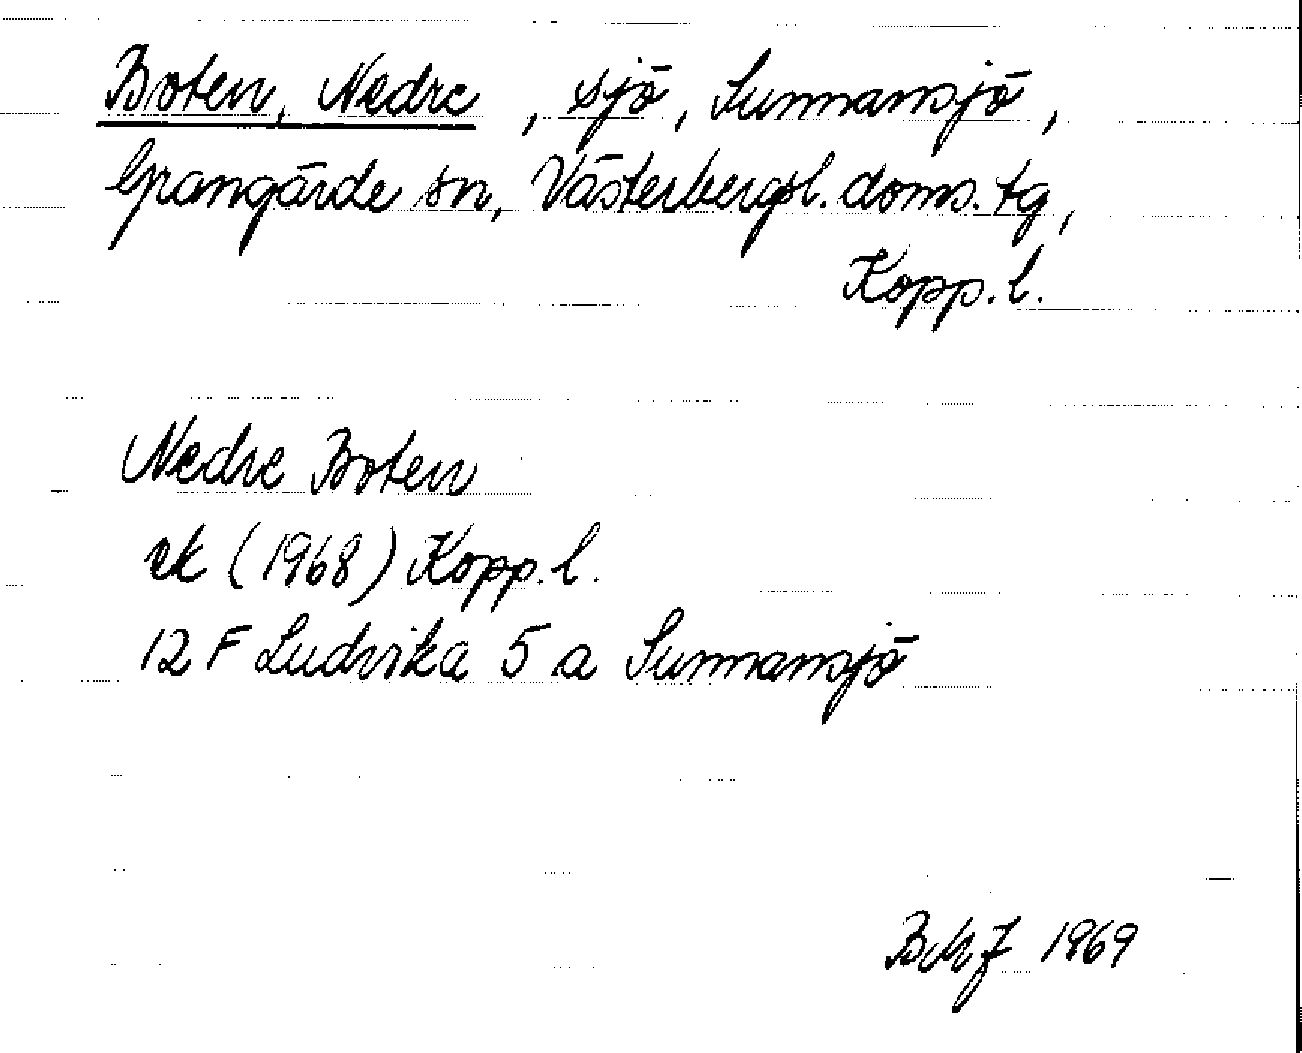 Boten, Nedre, sjö, Sunnansjö,
Grangärde sn, Västerbergsl. doms. tg,
Kopp. l.
Nedre Boten
ek (1968) Kopp. l.
12 F Ludvika 5 a Sunnansjö
1969